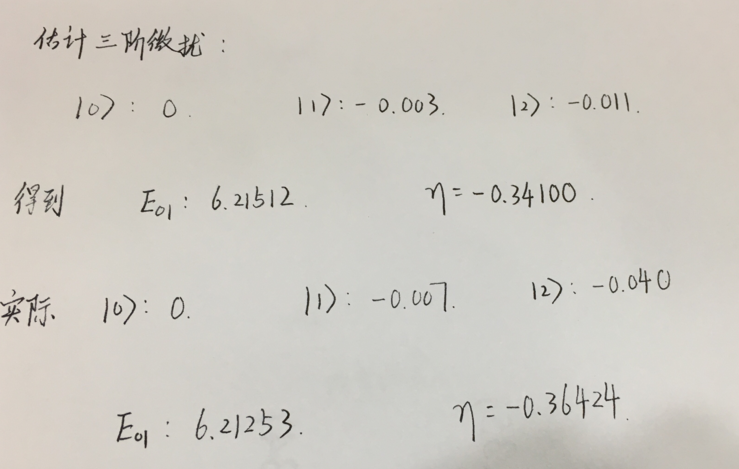 估计三阶微扰:
|0⟩: 0. |1⟩: -0.003. |2⟩: -0.011.
得到 E01: 6.21512. η=-0.34100.
实际 |0⟩: 0. |1⟩: -0.007. |2⟩: -0.040
E01: 6.21253. η=-0.36424.